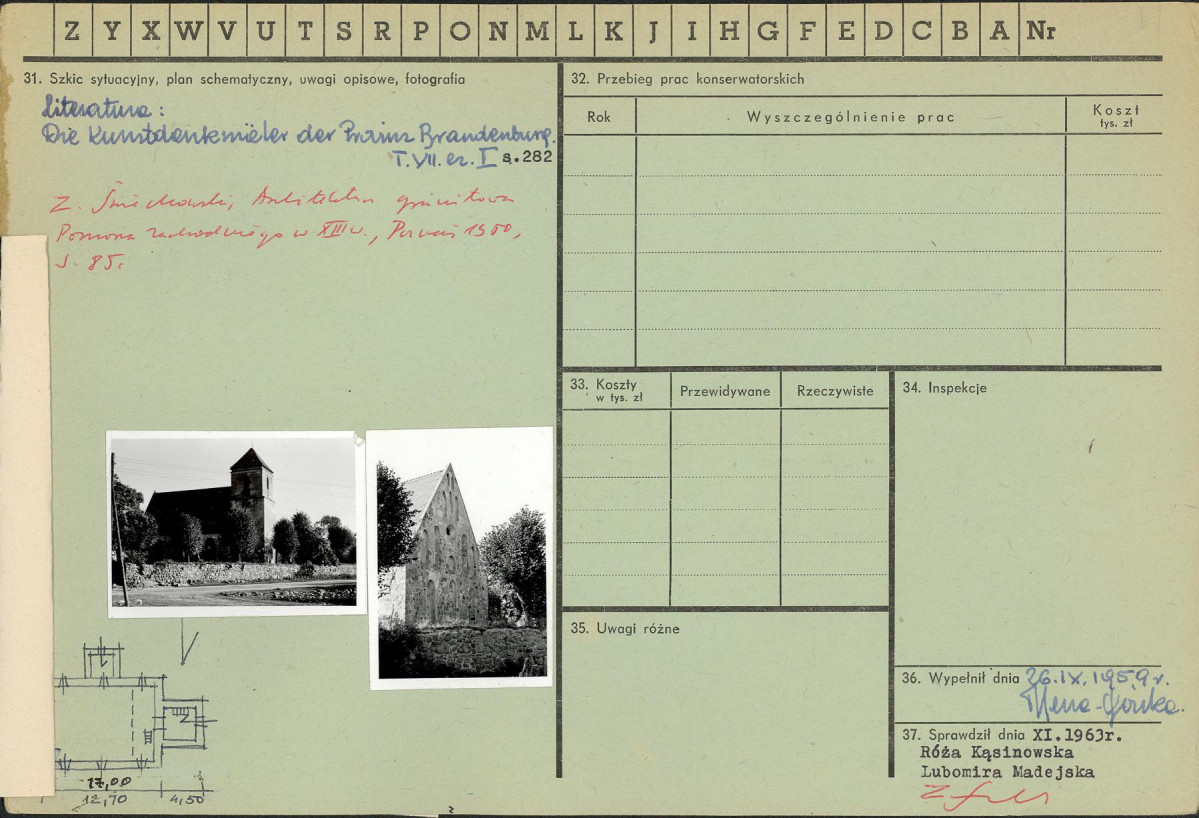 Z Y X W V U T S R P O N M L K J I H G F E D C B A Nr
31. Szkic sytuacyjny, plan schematyczny, uwagi opisowe, fotografia
Literatura:
Die Kunstdenkmäler der Provinz Brandenburg.
T.VII. cz. I s.282
Z. Świechowski, Architektura granitowa
Pomorza zachodniego w XIII w., Poznań 1950,
s. 85.
17,00
12,70 4,50
32. Przebieg prac konserwatorskich
Rok Wyszczególnienie prac Koszt
tys. zł
33. Koszty Przewidywane Rzeczywiste
w tys. zł
34. Inspekcje
35. Uwagi różne
36. Wypełnił dnia 26.IX.1959r.
37. Sprawdził dnia XI.1963r.
Róża Kąsinowska
Lubomira Madejska